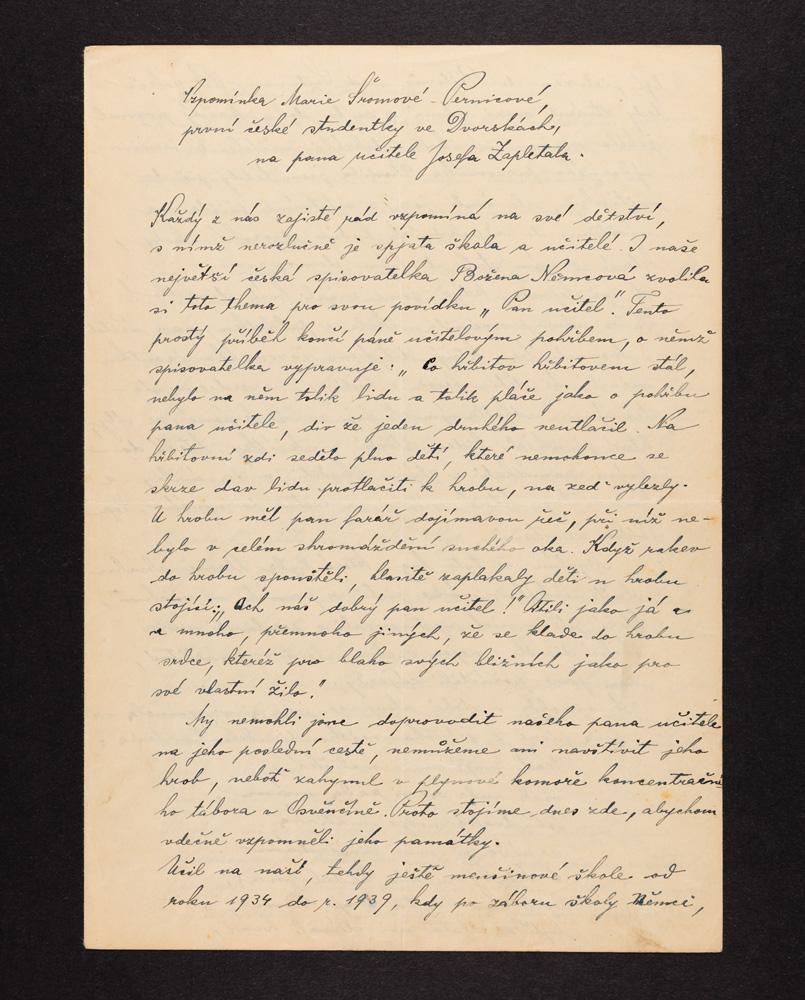 Vzpomínka Marie Šromové-Pernicové,
první české studentky ve Dvorskách,
na pana učitele Josefa Zapletala.
Každý z nás zajisté rád vzpomíná na své dětství,
s nímž nerozlučně je spjata škola a učitelé. I naše
největší česká spisovatelka Božena Němcová zvolila
si toto thema pro svou povídku „Pan učitel". Tento
prostý příběh končí páně učitelovým pohřbem, o němž
spisovatelka vypravuje: „Co hřbitov hřbitovem stál,
nebylo na něm tolik lidu a tolik pláče jako o pohřbu
pana učitele, div že jeden druhého neutlačil. Na
hřbitovní zdi sedělo plno dětí, které nemohouce se
skrze dav lidu protlačiti k hrobu, na zeď vylezly.
U hrobu měl pan farář dojímavou řeč, při níž ne-
bylo v celém shromáždění suchého oka. Když rakev
do hrobu spouštěli, hlasitě zaplakaly děti u hrobu
stojící: „Ach náš dobrý pan učitel!" Cítili jako já a
a mnoho, přemnoho jiných, že se klade do hrobu
srdce, kteréž pro blaho svých bližních jako pro
své vlastní žilo."
My nemohli jsme doprovodit našeho pana učitele
na jeho poslední cestě, nemůžeme ani navštívit jeho
hrob, neboť zahynul v plynové komoře koncentrační
ho tábora v Osvěnčíně. Proto stojíme dnes zde, abychom
vděčně vzpomněli jeho památky.
Učil na naší, tehdy ještě menšinové škole od
roku 1934 do r. 1939, kdy po záboru školy Němci,